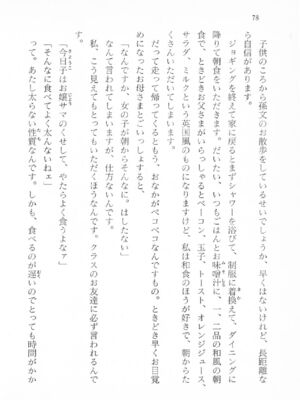 78
子供のころから孫文のお散歩をしているせいでしょうか、早くはないけれど、長距離な
ら自信があります。
ジョギングを終えて寮に戻るとまずシャワーを浴びて、制服に着換えて、ダイニングに
降りて朝食をいただきます。だいたい、いつもごはんとお味噌汁に、一、二品の和風の朝
食で、ときどきお父さまがいらっしゃるとベーコン、玉子、トースト、オレンジジュース、
サラダ、ミルクという英国風のものになりますけど、私は和食のほうが好きで、朝からた
くさんいただきます。
だって走って帰ってくるともう、おなかがペコペコなんですもの。ときどき早くお目覚
めになったお母さまとごいっしょすると、
「なんですか、女の子が朝からそんなに。はしたない」
なんて言われてしまいますが、仕方ないんです。
私、こう見えてもとってもいただくほうなんです。クラスのお友達に必ず言われるんで
す。
「今日子はお嬢サマのくせして、やたらよく食うよなァ」
きょうこ
じょう
「そんなに食べてよく太んないねェ」
って。あたし太らない性質なんです。しかも、食べるのが遅いのでとっても時間がかか